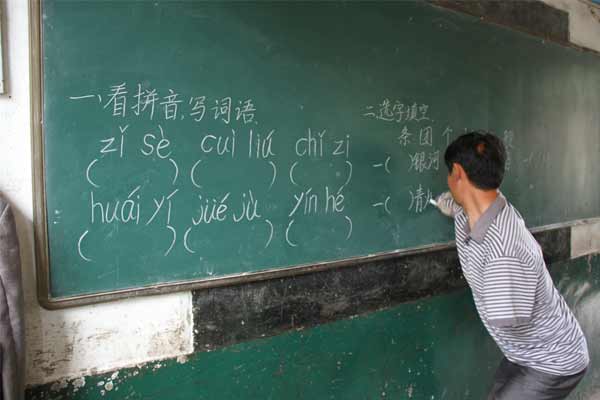 一、看拼音,写词语.
zǐ sè cuì chǐ zi
( ) ( ) ( )
huái yí jüé jù yín hé
( ) ( ) ( )
二.选字填空.
条 团 个
一( )银河
一( )清